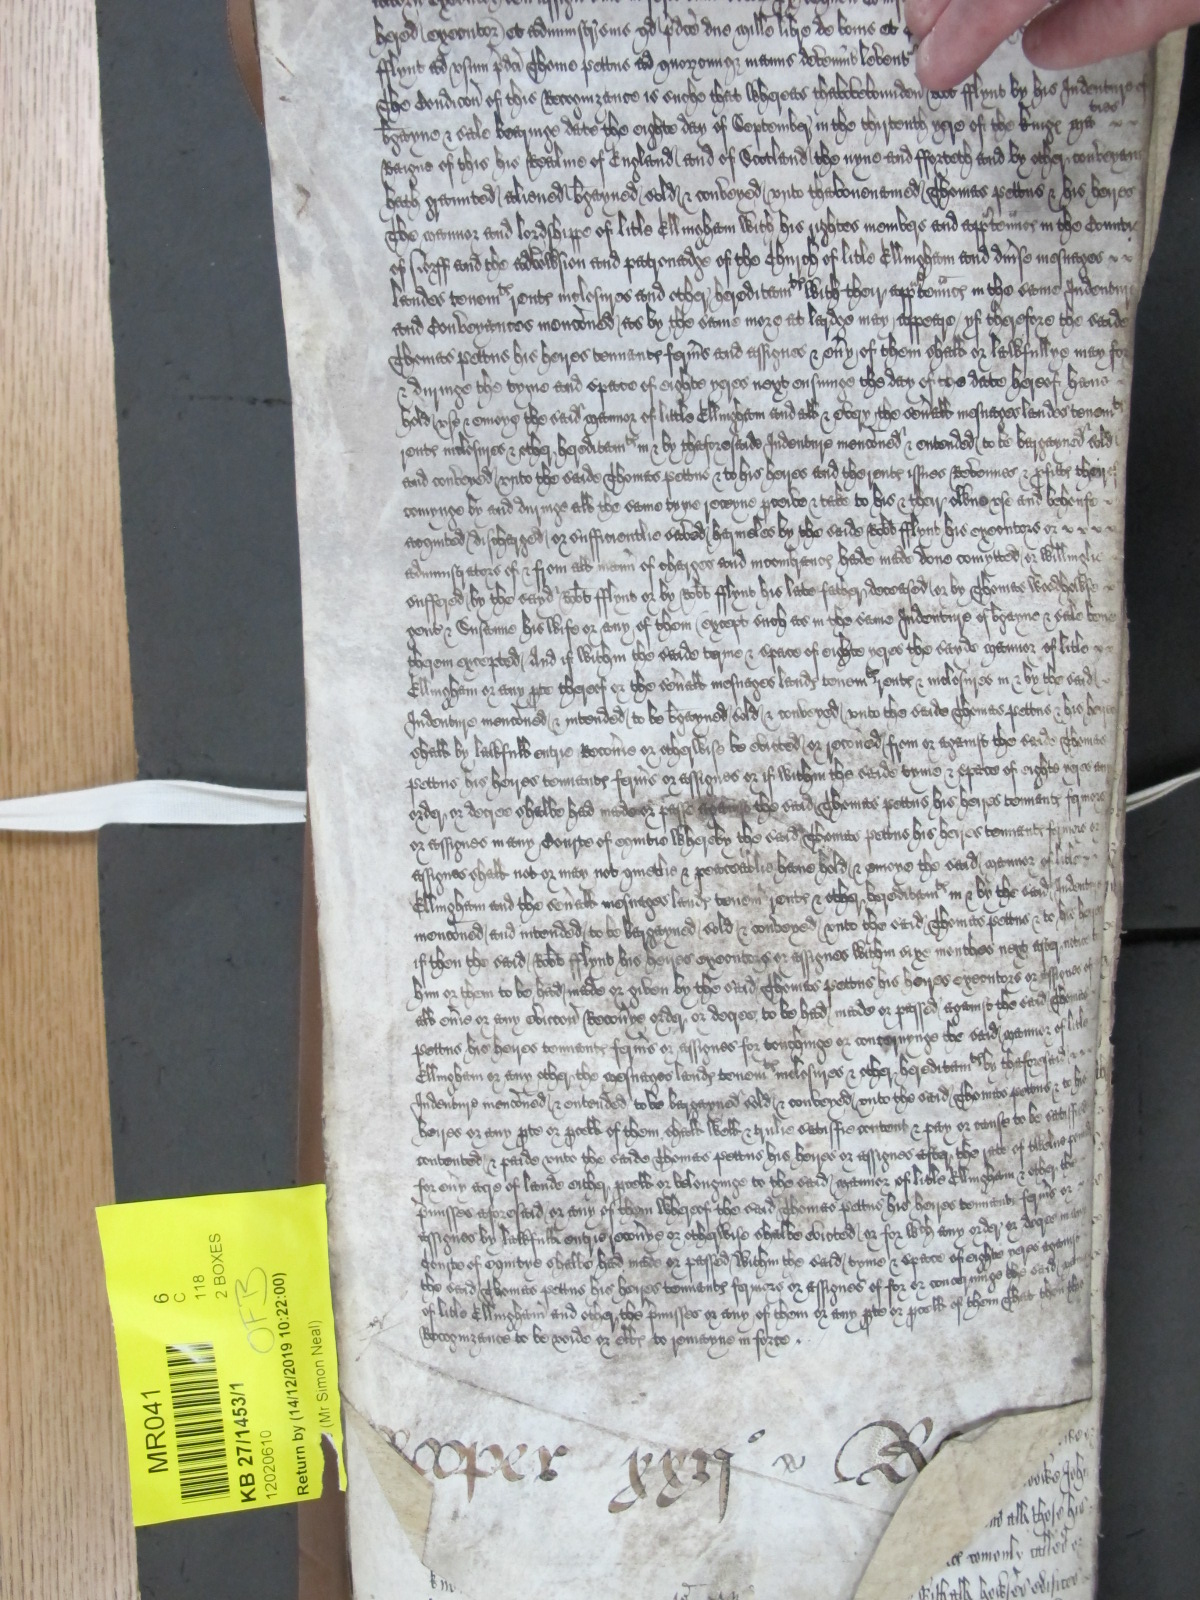 hered executor et administr
fflynt ad usum pdci Thome Pettus ad quorumcumque manus devenint
The Condicon of this Recognizance is suche that whereas thabovebounden Robt fflynt by his Indenture of
bgayne & sale bearinge date the eighte day of September in the thirtenth yere of the Kings
Raigne of this his Realme of England and of Scotland the nyne and fforteth and by other conveyan
hath graunted aliened bgayned sold & conveyed unto thabovenamed Thomas Pettus & his heires
The mannor and lordshippe of litle Ellingham with his rightes members and apptenncs in the Countie
of Norff and the advowsion and patronadge of the Church of litle Ellingham and divse mesuages
landes tenemts rents inclosures and other hereditamts with their apptenncs in the same Indenture
and Conveyances menconed as by the same more at lardge may appeare yf therefore the saide
Thomas Pettus his heires tennants fermrs and assignes & evy of them shall or lawfullye may for
& duringe the tyme and space of eighte yeres next ensuinge the day of the date hereof have
hold use & enioye the said mannor of little Ellingham and all & every the sevall mesuages landes tenemts
rents inclosures & other hereditamts in & by thaforesaide Indenture menconed & entended to be bargayned sold
and conveyed unto the saide Thomas Pettus & to his heires and the rents issues Revenues & pfitts there
comynge by and duringe all the same tyme receyve pceive & take to his & their owne use and behoufe
acquited discharged or sufficientlie saved harmeles by the saide Robt fflynt his executors or
administrators of & from all mann of charges and incombrancs hade made done comytted or willinglie
suffered by the sayd Robt fflynt or by Robt fflynt his late father deceased or by Thomas
gent & Susanne his wife or any of them except such as in the same Indenture of bgayne & sale
therein excepted And if within the saide terme & space of eighte yeres the sayde mannor of litle
Ellingham or any pte thereof or the sevall mesuages lands tenemts rents & inclosures in & by the said
Indenture menconed & intended to be bgayned sold & conveyed unto the saide Thomas Pettus & his heires
shall by lawfull entrie Recovie or otherwise be evicted or recoved from or against the saide Thomas
Pettus his heires tennants fermrs or assignes or if within the saide tyme & space of eighte yeres any
order or decree shalbe had made or passe against the said Thomas Pettus his heires tennants fermors
or assignes in any Courte of equitie whereby the said Thomas Pettus his heires tennants fermors or
assignes shall not or may not quietlie & peaceablie have hold & enioye the said mannor of litle
Ellingham and the sevall mesuages lands tenemts rents & other hereditamts in & by the said Indenture
menconed and intended to be bargayned sold & conveyed unto the said Thomas Pettus & to his heires
if then the said Robt fflynt his heires executors or assignes within sixe monthes next after notice to
him or them to be had made or given by the said Thomas Pettus his heires executors or assignes of
all evie or any eviccon Recovye order or decree to be had made or passed against the said Thomas
Pettus his heires tennants fermrs or assignes for touchinge or concernynge the said mannor of litle
Ellingham or any other the mesuages lands tenemts inclosures & other hereditamts by thaforesaid
Indenture menconed & entended to be bargayned sold & conveyed unto the said Thomas Pettus & to his
heires or any pte or pcell of them shall well & trulie satisfie content & pay or cause to be satisfied
contented & paide unto the saide Thomas Pettus his heires or assignes after the rate of twelve
for evy acre of lande either pcell or belonginge to the said mannor of litle Ellingham & other the
pmisses aforesaid or any of them whereof the said Thomas Pettus his heires tennants fermrs or
assignes by lawfull entrie recovye or otherwise shalbe evicted or for wch any order or decree in any
courte of equitye shalbe had made or passed within the said tyme & space of eighte yeres against
the said Thomas Pettus his heires tennants fermors or assignes of for or concerninge the said mannor
of litle Ellingham and other the pmisses or any of them or any pte or pcell of them That then this
Recognizance to be voide or els to remayne in force
xxij
MR041
6
C
118
2 BOXES
KB 27/1453/1
OFB
12020610
Return by (14/12/2019 10:22:00)
(Mr Simon Neal)
and all those his
comonly called